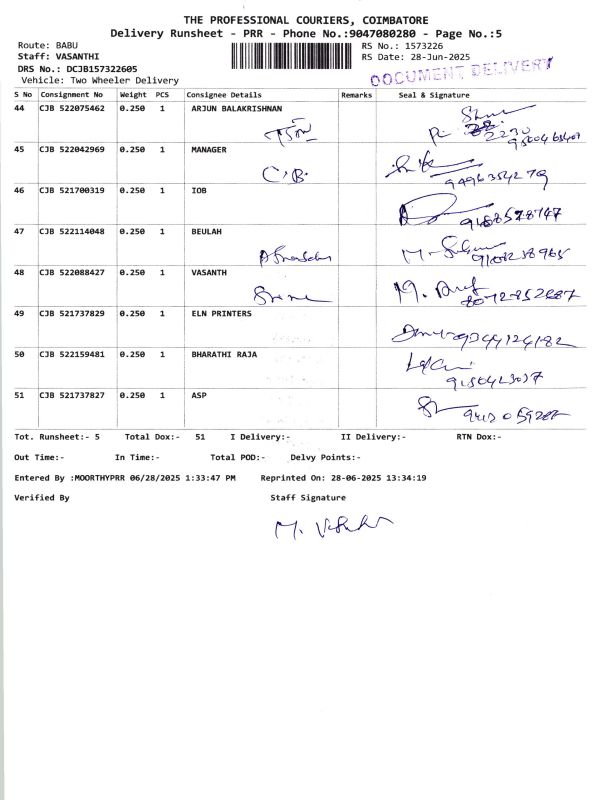 THE PROFESSIONAL COURIERS, COIMBATORE
Delivery Runsheet - PRR - Phone No.:9047080280 - Page No.:5
Route: BABU RS No.: 1573226
Staff: VASANTHI RS Date: 28-Jun-2025
DRS No.: DCJB157322605 DOCUMENT DELIVERY
Vehicle: Two Wheeler Delivery
S No Consignment No Weight PCS Consignee Details Remarks Seal & Signature
44 CJB 522075462 0.250 1 ARJUN BALAKRISHNAN
45 CJB 522042969 0.250 1 MANAGER
C.B.
9496354279
46 CJB 521700319 0.250 1 IOB
47 CJB 522114048 0.250 1 BEULAH
48 CJB 522088427 0.250 1 VASANTH
49 CJB 521737829 0.250 1 ELN PRINTERS
9344124182
50 CJB 522159481 0.250 1 BHARATHI RAJA
51 CJB 521737827 0.250 1 ASP
Tot. Runsheet:- 5 Total Dox:- 51 I Delivery:- II Delivery:- RTN Dox:-
Out Time:- In Time:- Total POD:- Delvy Points:-
Entered By :MOORTHYPRR 06/28/2025 1:33:47 PM Reprinted On: 28-06-2025 13:34:19
Verified By Staff Signature